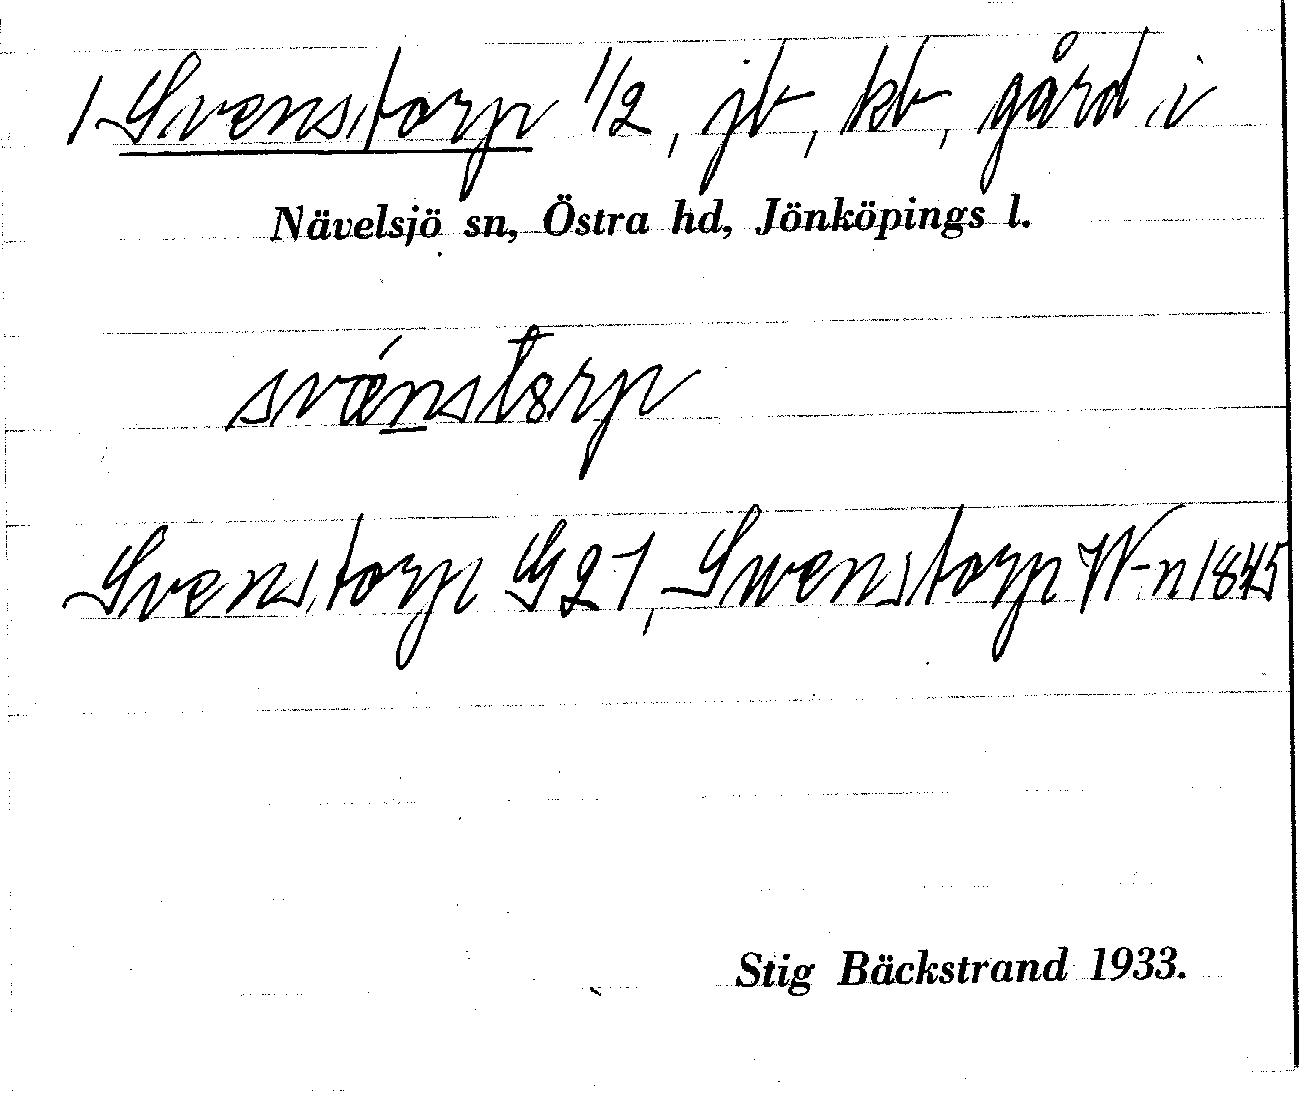 1 Svenstorp 1/2, jb, kb, gård i
Nävelsjö sn, Östra hd, Jönköpings l.
svǽnstorp
Svenstorp G 21, Swenstorp W-n 1845
Stig Bäckstrand 1933.